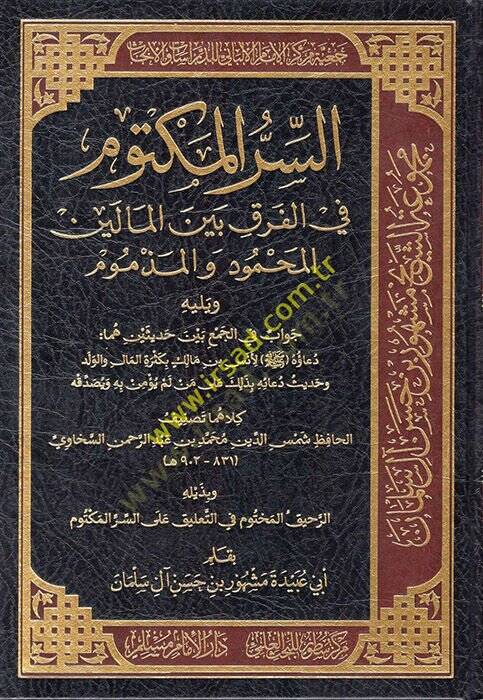 جمعية مركز الإمام الألباني للدراسات والأبحاث
السِّرُّ المَكْتُوم
في الفَرْقِ بَيْنَ المَالَيْنِ
المَحْمُود وَالمَذْمُوم
وَيَليه
جَوابٌ في الجَمْعِ بَيْنَ حَديثَيْنِ هُمَا:
دُعَاؤُهُ (ﷺ) لِأَنَسِ بنِ مَالِكٍ بِكَثْرَةِ المَالِ وَالوَلَدِ
وَحَديثِ دُعَائِهِ بِذَلِكَ عَلَى مَنْ لَمْ يُؤْمِنْ بِهِ وَيُصَدِّقْهُ
كِلَاهُمَا تَصْنِيفُ
الحَافِظِ شَمْسِ الدِّينِ مُحَمَّدِ بنِ عَبْدِ الرَّحْمَنِ السَّخَاوِيِّ
(٨٣١ - ٩٠٢ هـ)
وَبِذَيْلِهِ
الرَّحِيقُ المَخْتُوم في التَّعْلِيقِ عَلَى السِّرِّ المَكْتُوم
بِقَلَم
أَبي عُبَيْدَةَ مَشْهُور بن حَسَن آل سَلْمَان
مجموعة الشيخ مشهور بن حسن آل سلمان
دار الإمام مسلم
www.irsad.com.tr